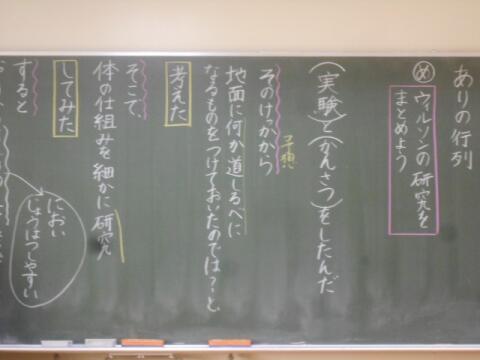 ありの行列
め
ウィルソンの研究を
まとめよう
(実験)と(かんさつ)をしたんだ
予想
そのけっかから
地面に何か道しるべに
なるものをつけておいたのでは?と、
考えた
そこで、
体の仕組みを細かに研究
してみた
すると
におい
じょうはつしやすい